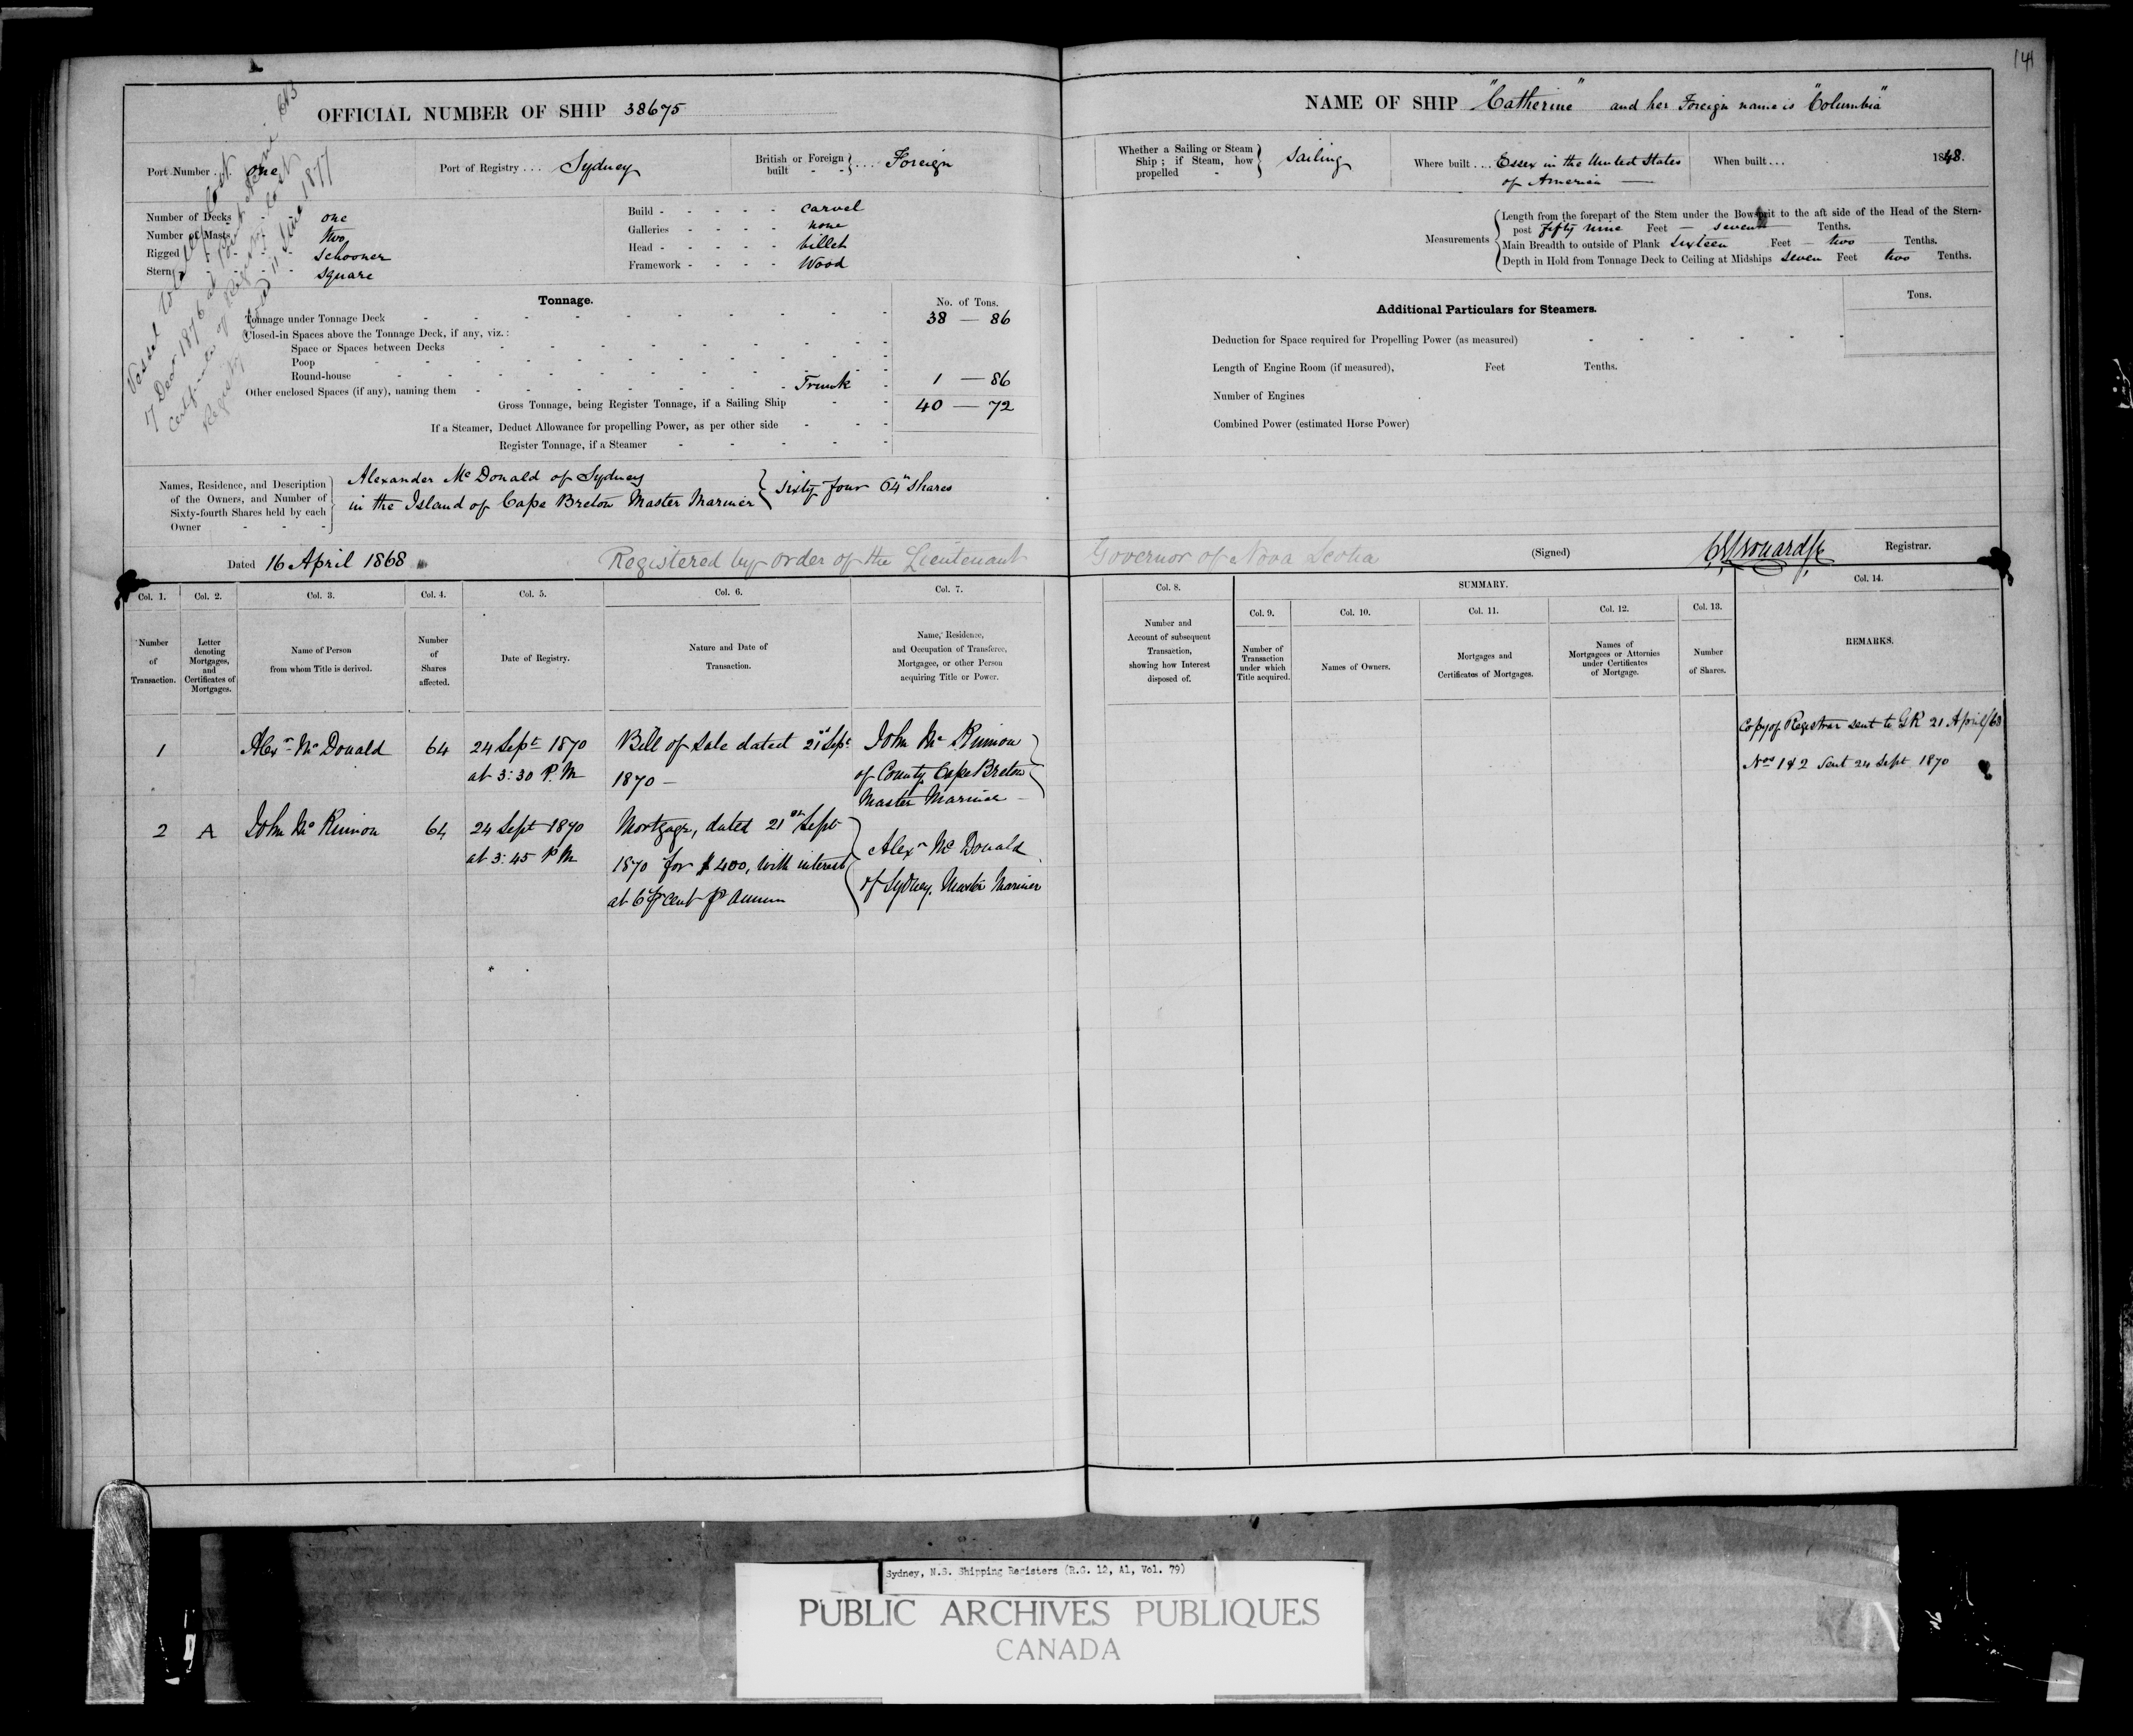 141
OFFICIAL NUMBER OF SHIP 38675
Port Number . . one
Port of Registry . . . Sydney
British or Foreign built - - } . . . Foreign
Number of Decks - one
Number of Masts - two
Rigged - Schooner
Stern - Square
Build - - - - - carvel
Galleries - - - - none
Head - - - - - billet
Framework - - - - Wood
Vessel totally lost
7 Decr 1876 at
Certificate of Registry lost
Registry closed 11 June 1877
Tonnage.
No. of Tons.
Tonnage under Tonnage Deck 38 — 86
Closed-in Spaces above the Tonnage Deck, if any, viz.:
Space or Spaces between Decks
Poop
Round-house
Other enclosed Spaces (if any), naming them - Trunk 1 — 86
Gross Tonnage, being Register Tonnage, if a Sailing Ship 40 — 72
If a Steamer, Deduct Allowance for propelling Power, as per other side
Register Tonnage, if a Steamer
Names, Residence, and Description of the Owners, and Number of Sixty-fourth Shares held by each Owner
Alexander McDonald of Sydney
in the Island of Cape Breton Master Mariner } Sixty four 64th shares
Dated 16 April 1868
Registered by order of the Lieutenant Governor of Nova Scotia
NAME OF SHIP "Catherine" and her Foreign name is "Columbia"
Whether a Sailing or Steam Ship; if Steam, how propelled } Sailing
Where built . . . Essex in the United States
of America —
When built . . . 1848.
Measurements
Length from the forepart of the Stem under the Bowsprit to the aft side of the Head of the Stern-
post fifty nine Feet — seven Tenths.
Main Breadth to outside of Plank Sixteen Feet — two Tenths.
Depth in Hold from Tonnage Deck to Ceiling at Midships seven Feet two Tenths.
Additional Particulars for Steamers.
Tons.
Deduction for Space required for Propelling Power (as measured)
Length of Engine Room (if measured), Feet Tenths.
Number of Engines
Combined Power (estimated Horse Power)
(Signed) Registrar.
Col. 1. Col. 2. Col. 3. Col. 4. Col. 5. Col. 6. Col. 7.
Number of Transaction.
Letter denoting Mortgages, and Certificates of Mortgages.
Name of Person from whom Title is derived.
Number of Shares affected.
Date of Registry.
Nature and Date of Transaction.
Name, Residence, and Occupation of Transferee, Mortgagee, or other Person acquiring Title or Power.
Col. 8.
Number and Account of subsequent Transaction, showing how Interest disposed of.
SUMMARY.
Col. 9. Col. 10. Col. 11. Col. 12. Col. 13. Col. 14.
Number of Transaction under which Title acquired.
Names of Owners.
Mortgages and Certificates of Mortgages.
Names of Mortgagees or Attornies under Certificates of Mortgage.
Number of Shares.
REMARKS.
1 Alexr Mc Donald 64 24 Sept 1870 Bill of Sale dated 21st Sept John Mc Kinnon
at 3:30 P.M 1870 — of County Cape Breton
Master Mariner —
2 A John Mc Kinnon 64 24 Sept 1870 Mortgage, dated 21st Sept
at 3:45 PM 1870 for $400, with interest Alexr Mc Donald
at 6 pr cent pr annum of Sydney. Master Mariner
Copy of Registrar sent to G.R 21 April/68
Nos 1 & 2 Sent 24 Sept 1870
Sydney, N.S. Shipping Registers (R.G. 12, A1, Vol. 79)
PUBLIC ARCHIVES PUBLIQUES
CANADA